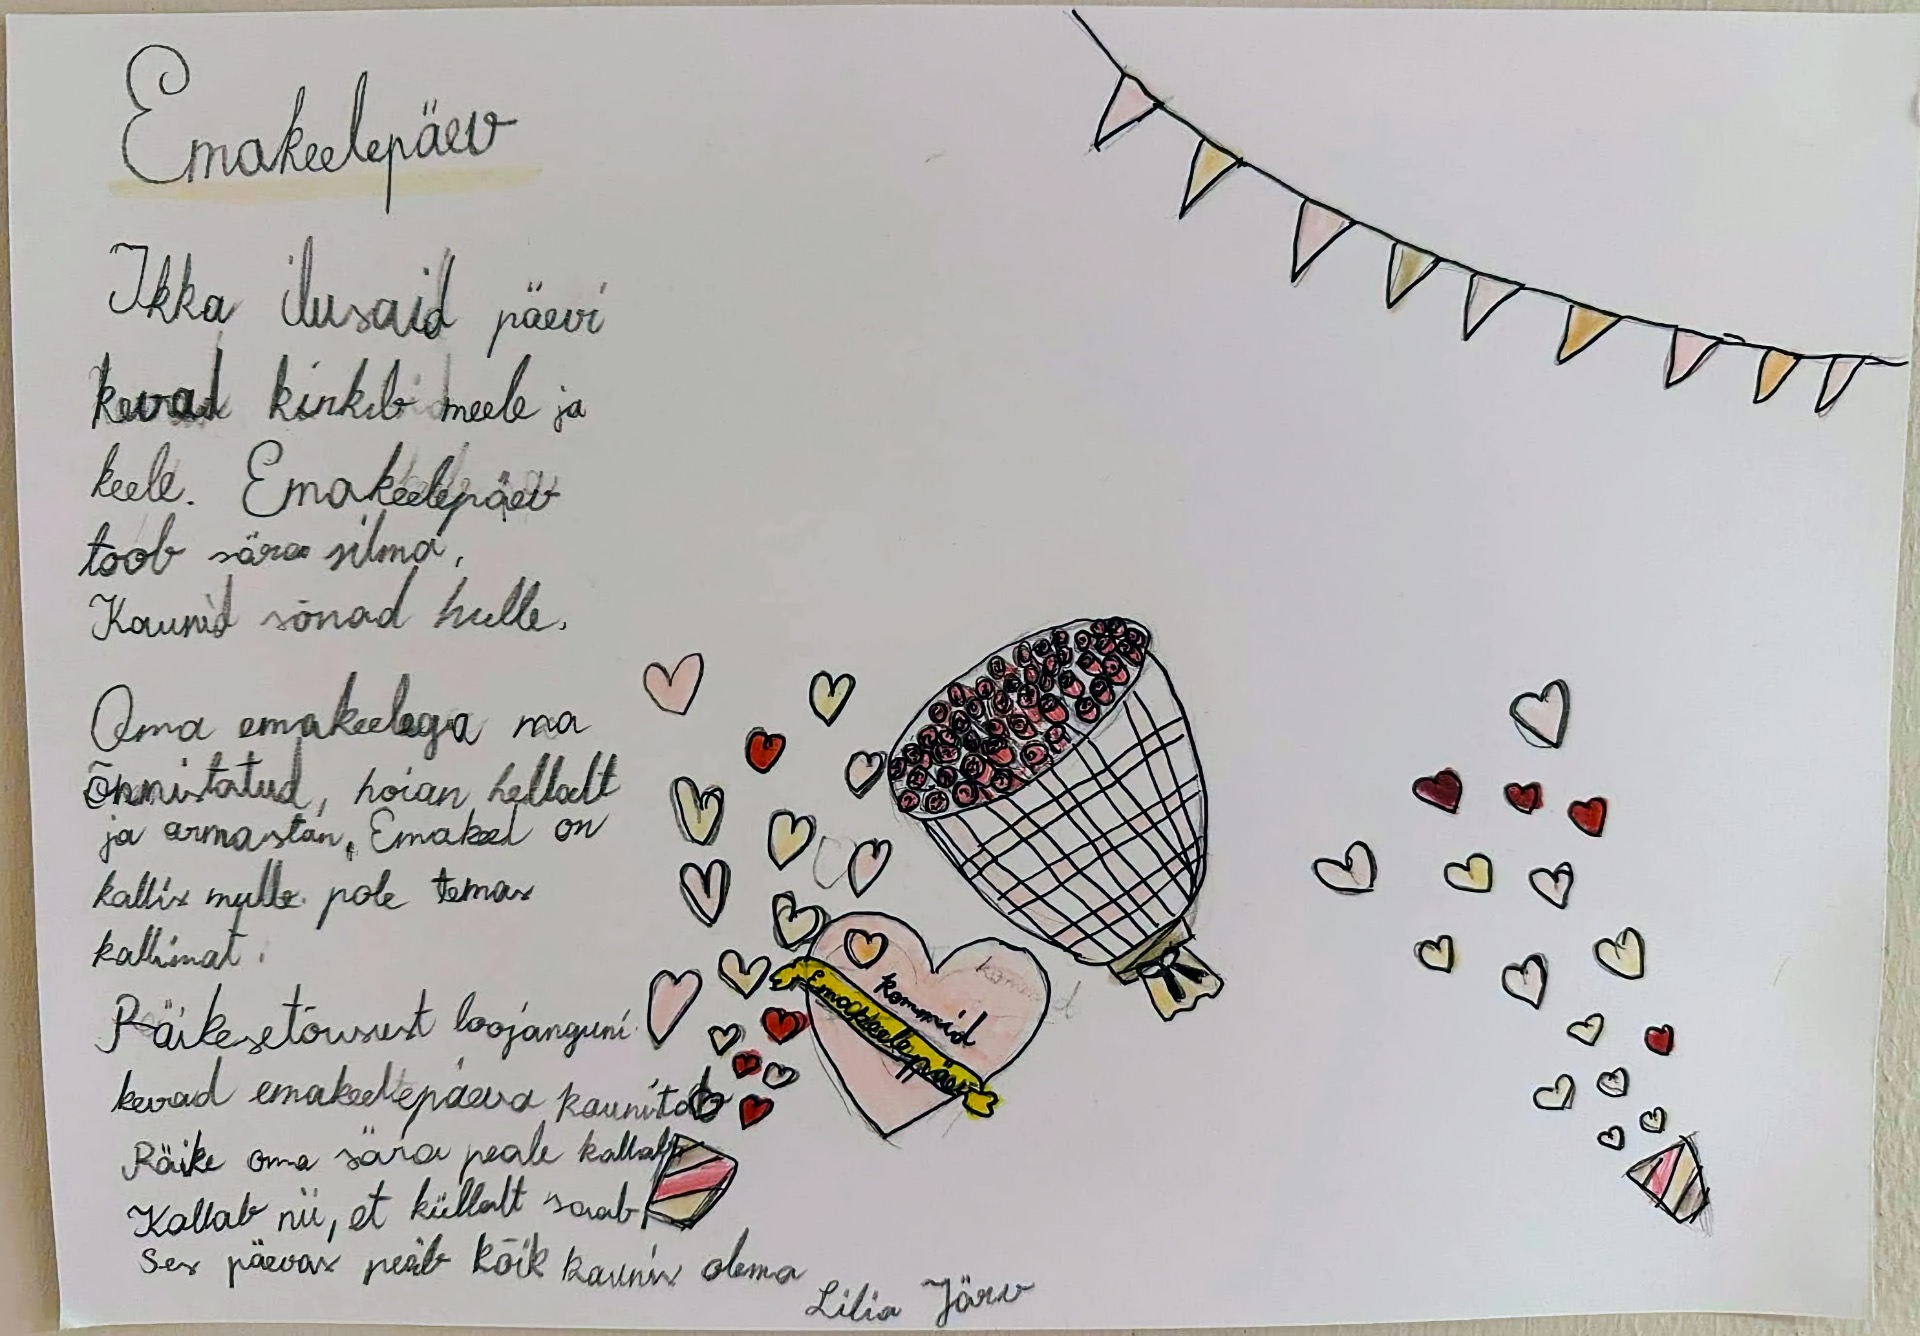 Emakeelepäev
Ikka ilusaid päevi
kevad kingib meele ja
keele. Emakeelepäev
toob sära silma,
Kaunid sõnad hulle.
Oma emakeelega ma
õnnistatud, hoian hellalt
ja armastan, Emakeel on
kallis mulle pole temas
kallimat.
Päikesetõusust loojanguni
kevad emakeelepäeva kaunistab
Päike oma sära peale kallab
Kallab nii, et küllalt saab,
Ses päevas peab kõik kaunis olema
Lilia Järv
kommid
Emakeelepäev